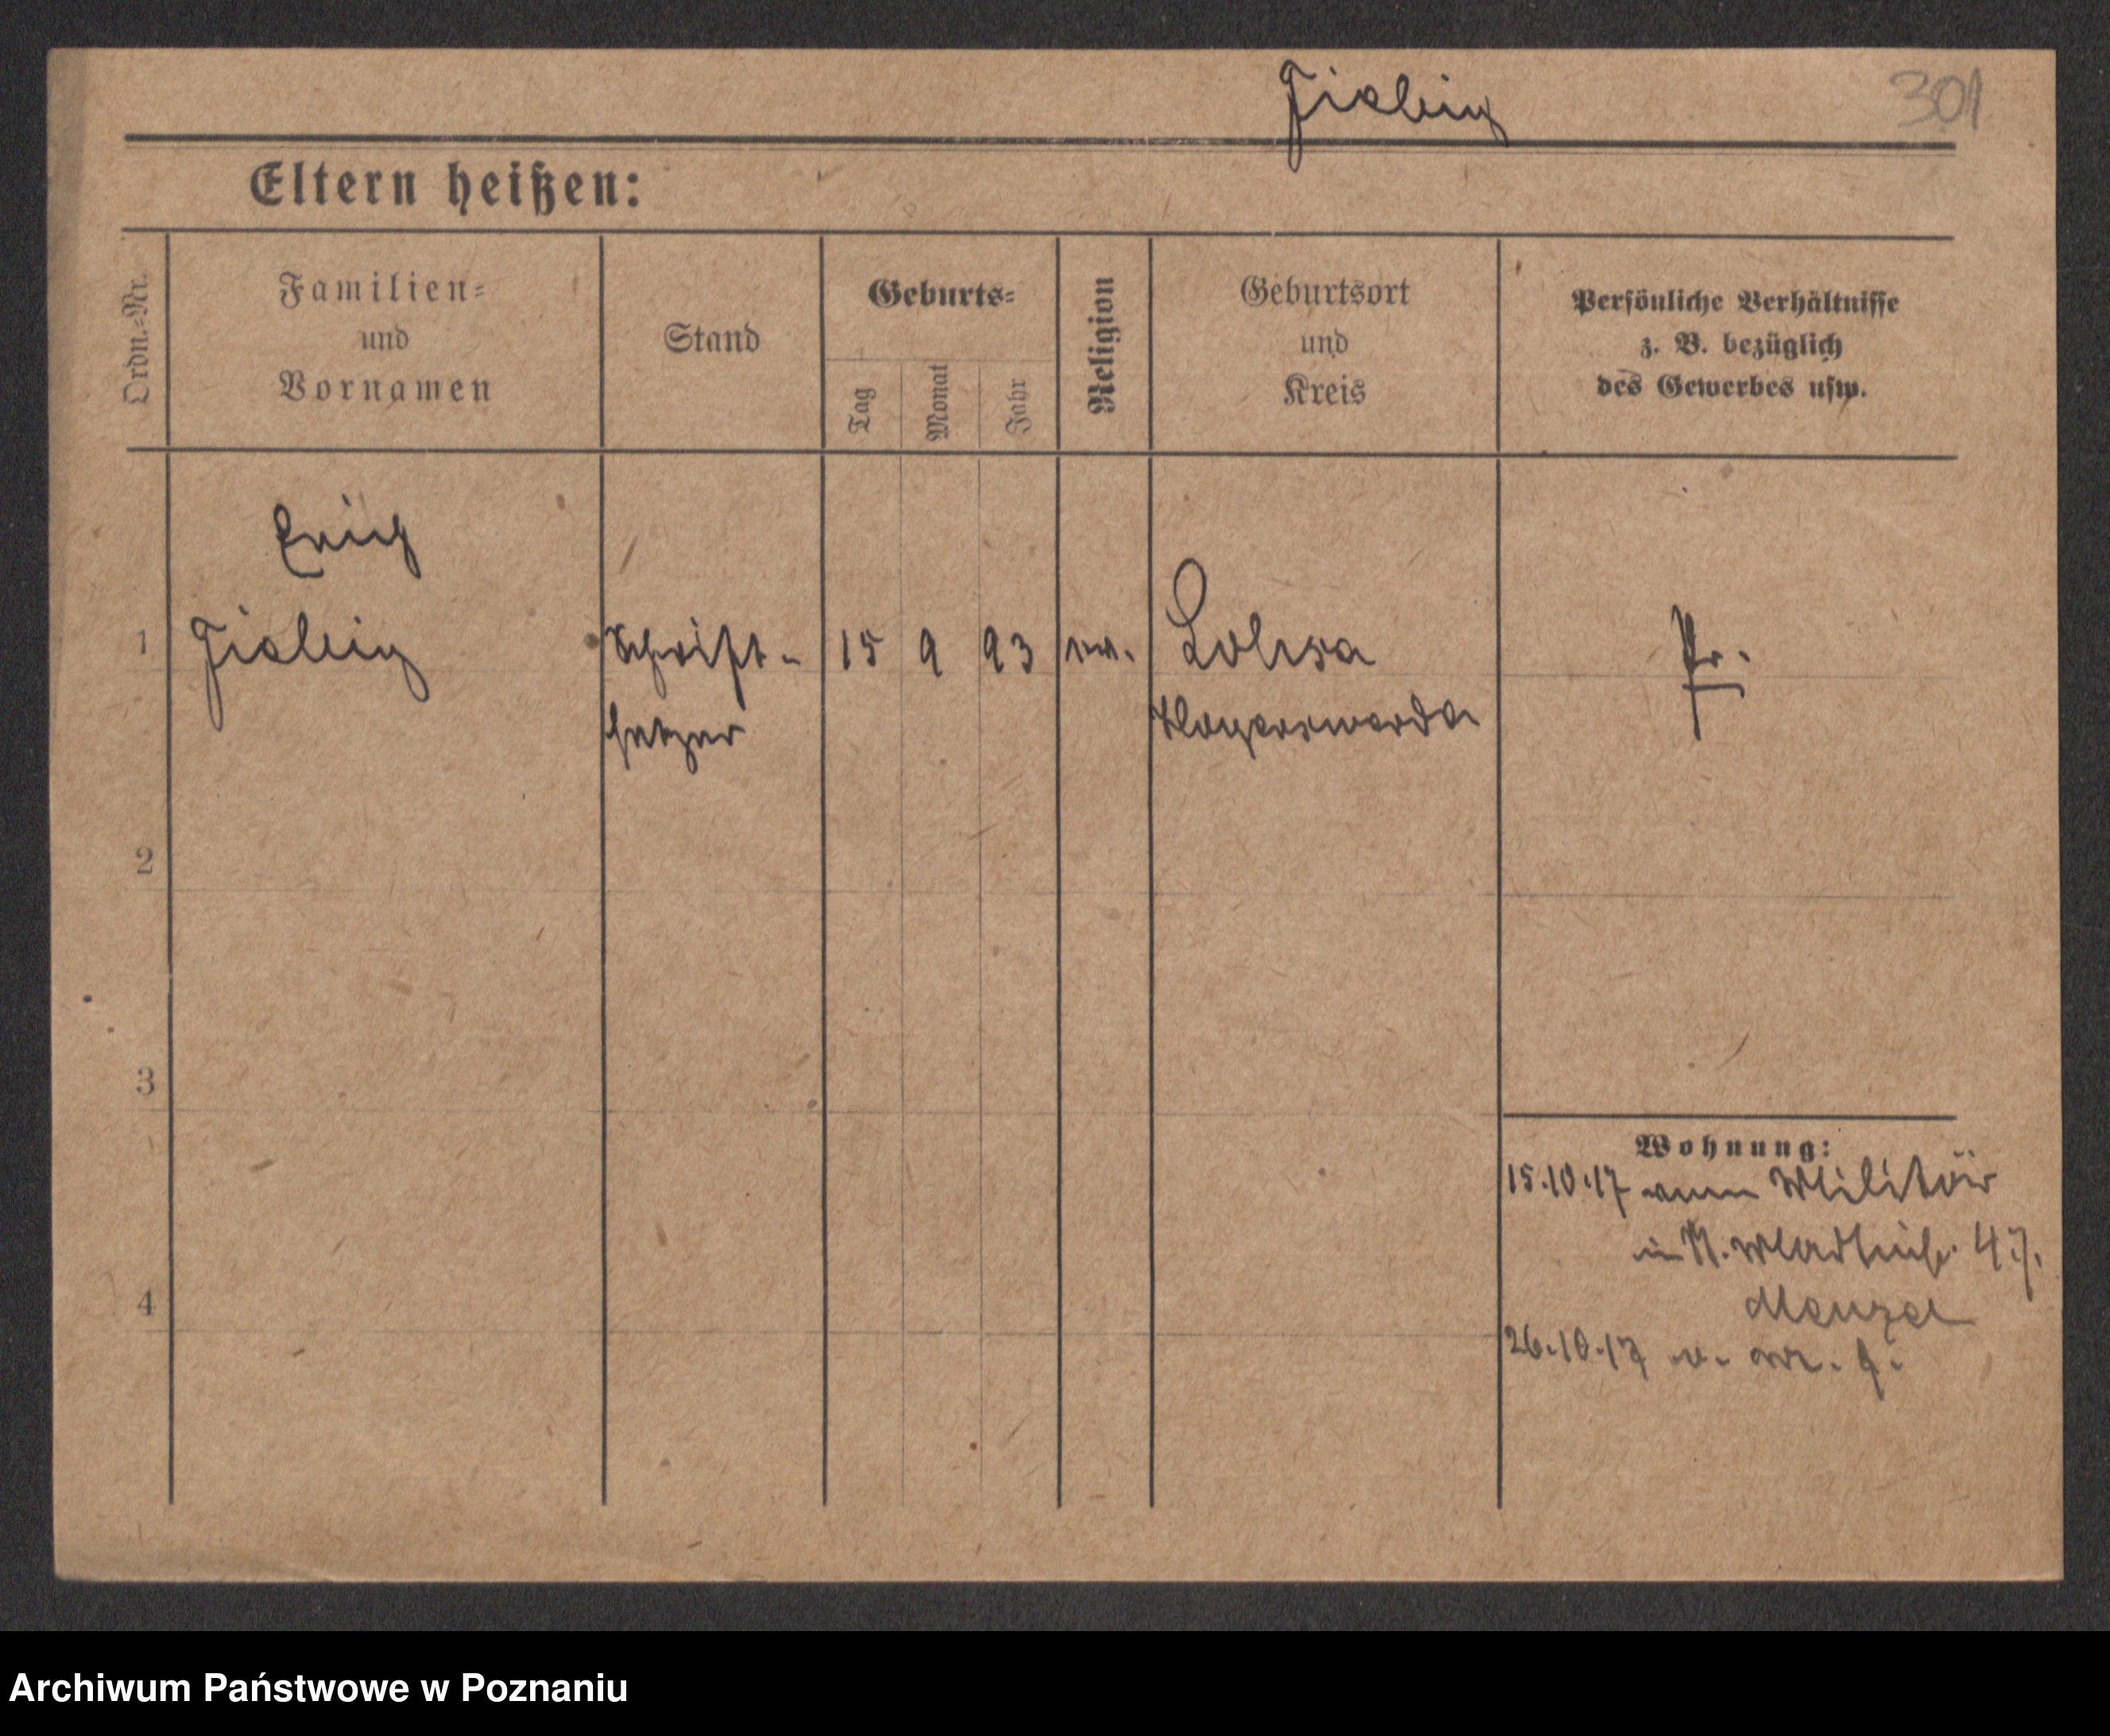 Fiebig 301
Eltern heißen:
Ordn.-Nr.
Familien-
und
Vornamen
Stand
Geburts-
Tag
Monat
Jahr
Religion
Geburtsort
und
Kreis
Persönliche Verhältnisse
z. B. bezüglich
des Gewerbes usw.
Erich
1 Fiebig Schrift- 15 9 93 ev. Lohsa Pr.
setzer Hoyerswerda
2
3
4
Wohnung:
15.10.17 vom Militär
in 47.
Menzel
26.10.17 v.
Archiwum Państwowe w Poznaniu